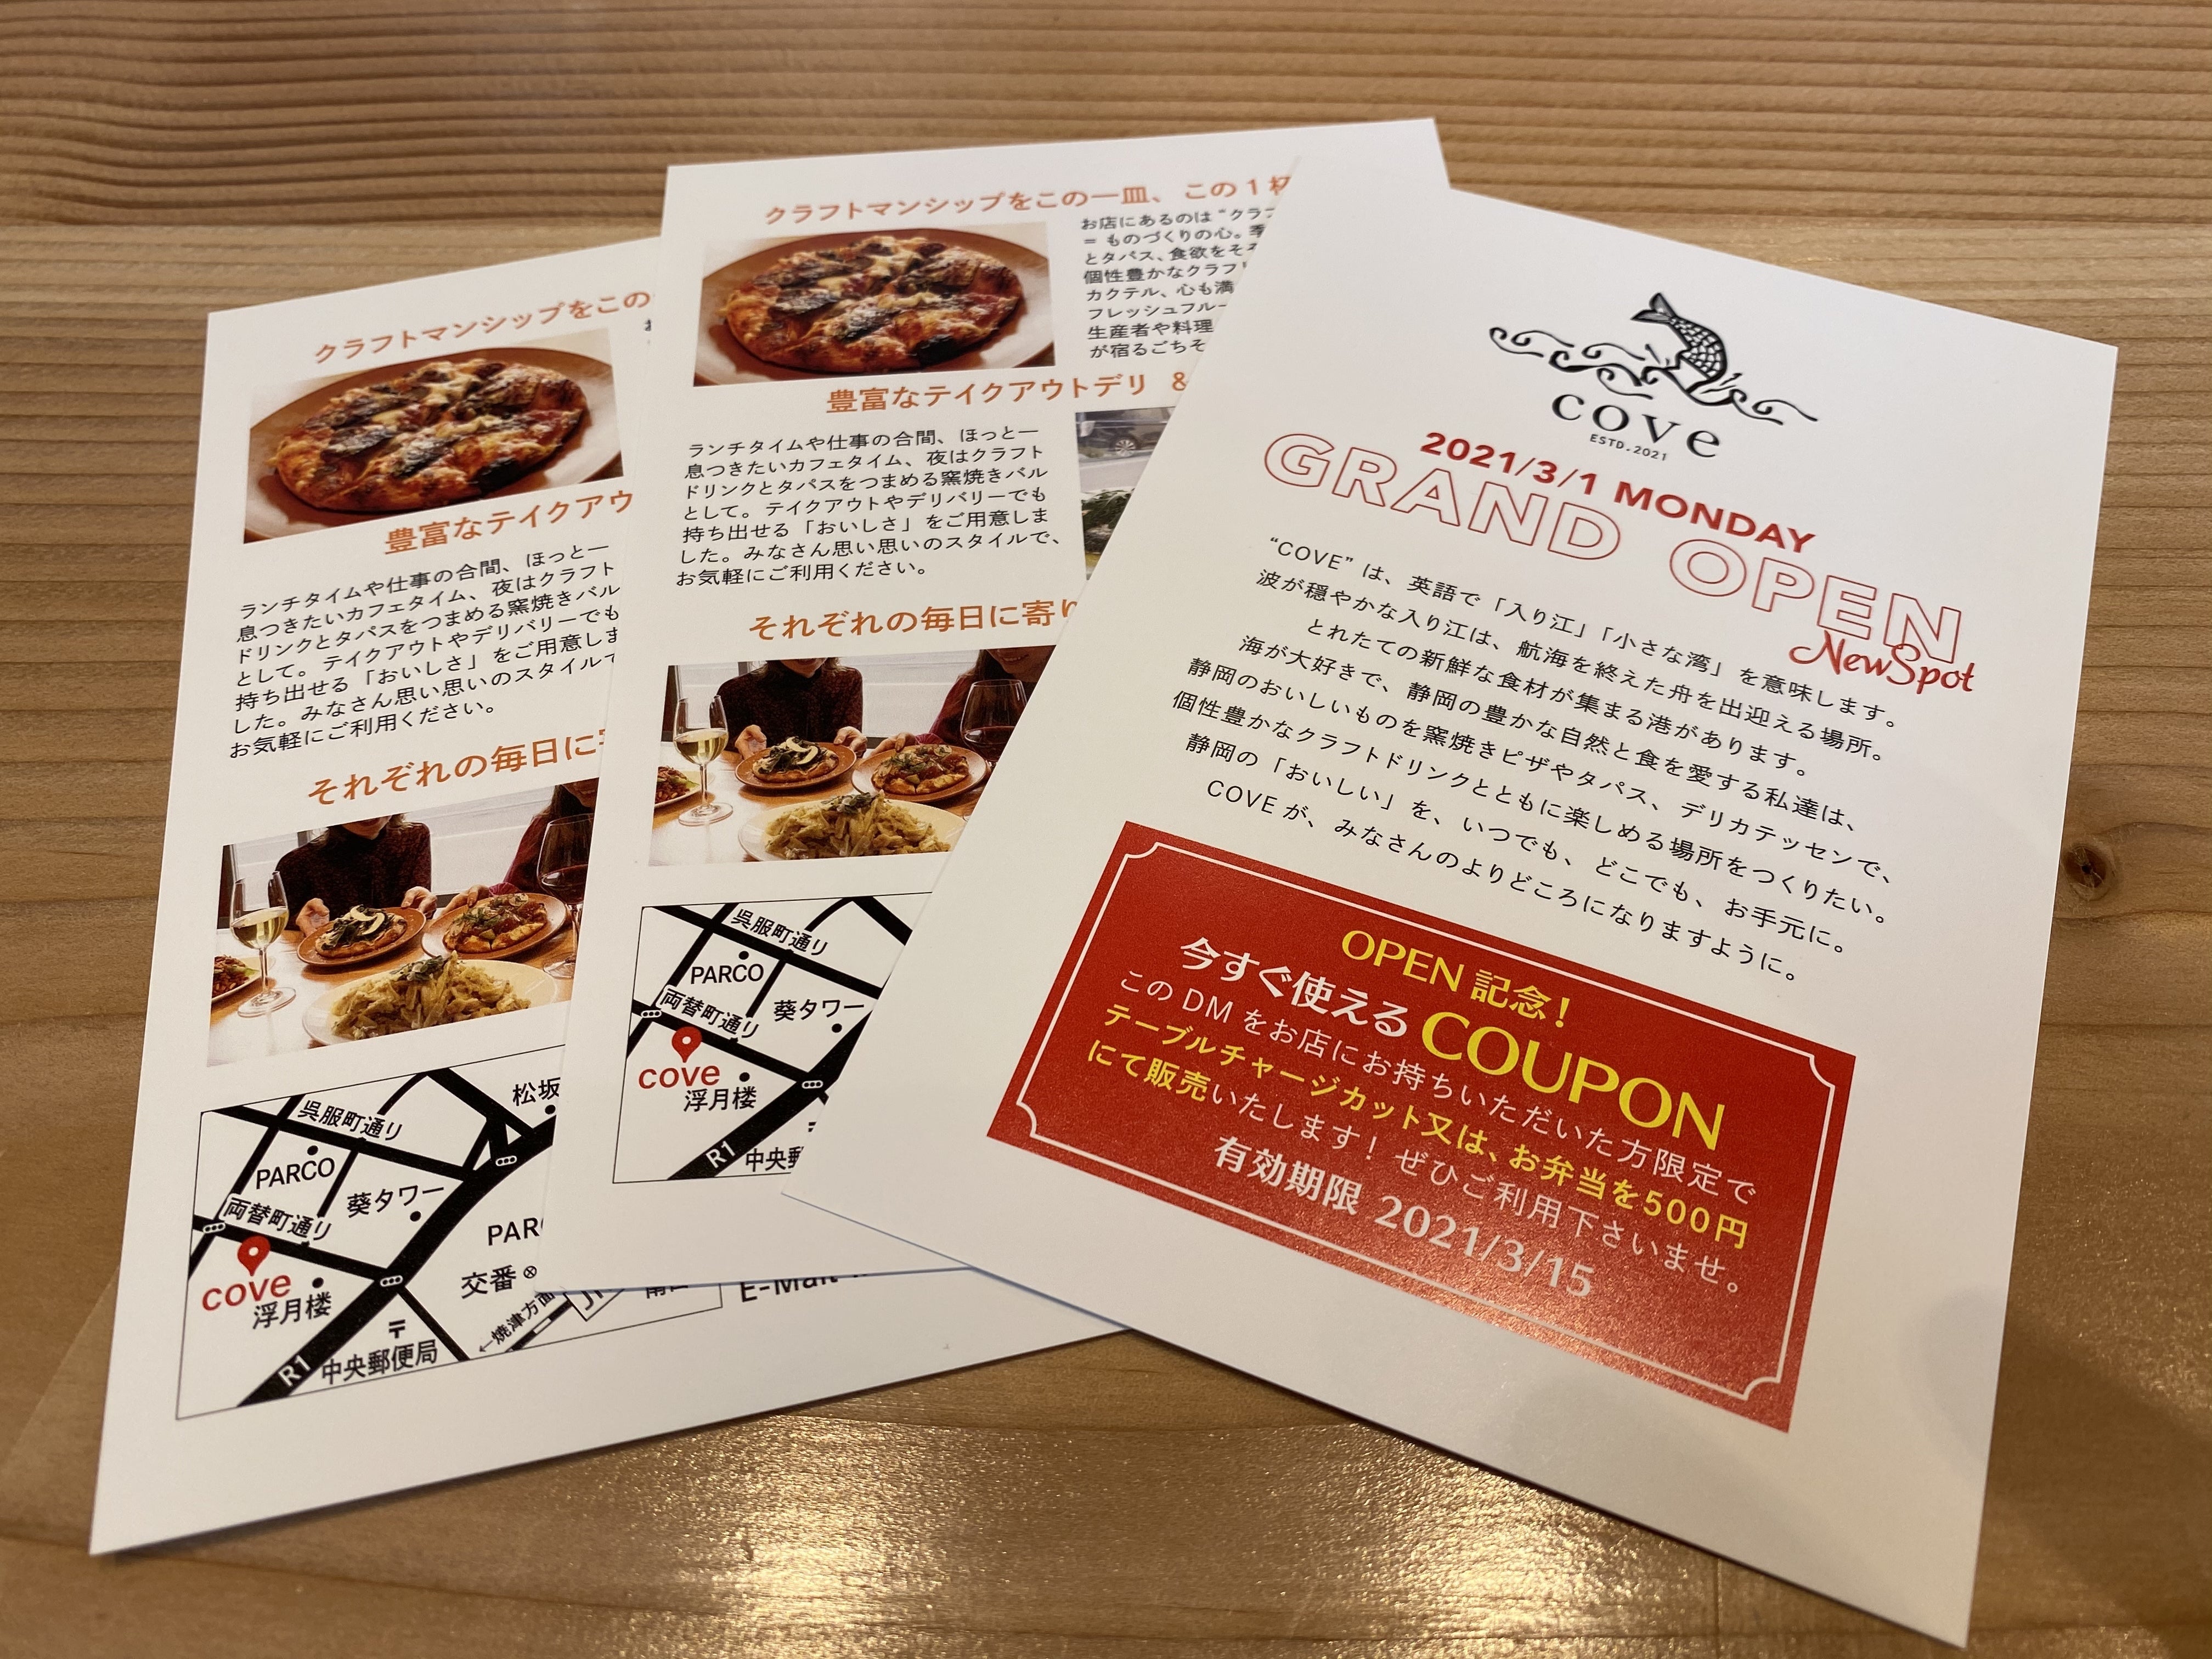 クラフトマンシップをこの
豊富なテイクアウ
ランチタイムや仕事の合間、ほっと一
息つきたいカフェタイム、夜はクラフト
ドリンクとタパスをつまめる窯焼きバル
として。テイクアウトやデリバリーでも
持ち出せる「おいしさ」をご用意しま
した。みなさん思い思いのスタイルで
お気軽にご利用ください。
それぞれの毎日に
呉服町通り
松坂
PARCO
葵タワー
両替町通り
PAR
cove
交番
浮月楼
〒
←焼津方面
R1
中央郵便局
E-Mail
クラフトマンシップをこの一皿、この1杯
お店にあるのは“クラフ
= ものづくりの心。季
とタパス、食欲をそそ
個性豊かなクラフト
カクテル、心も満
フレッシュフルー
生産者や料理
が宿るごちそ
豊富なテイクアウトデリ &
ランチタイムや仕事の合間、ほっと一
息つきたいカフェタイム、夜はクラフト
ドリンクとタパスをつまめる窯焼きバル
として。テイクアウトやデリバリーでも
持ち出せる「おいしさ」をご用意しま
した。みなさん思い思いのスタイルで、
お気軽にご利用ください。
それぞれの毎日に寄り
呉服町通り
PARCO
葵タワー
両替町通り
cove
浮月楼
R1
中央郵
cove
ESTD.2021
2021/3/1 MONDAY
GRAND OPEN
NewSpot
“COVE”は、英語で「入り江」「小さな湾」を意味します。
波が穏やかな入り江は、航海を終えた舟を出迎える場所。
とれたての新鮮な食材が集まる港があります。
海が大好きで、静岡の豊かな自然と食を愛する私達は、
静岡のおいしいものを窯焼きピザやタパス、デリカテッセンで、
個性豊かなクラフトドリンクとともに楽しめる場所をつくりたい。
静岡の「おいしい」を、いつでも、どこでも、お手元に。
COVEが、みなさんのよりどころになりますように。
OPEN 記念!
今すぐ使えるCOUPON
このDMをお店にお持ちいただいた方限定で
テーブルチャージカット又は、お弁当を500円
にて販売いたします! ぜひご利用下さいませ。
有効期限 2021/3/15